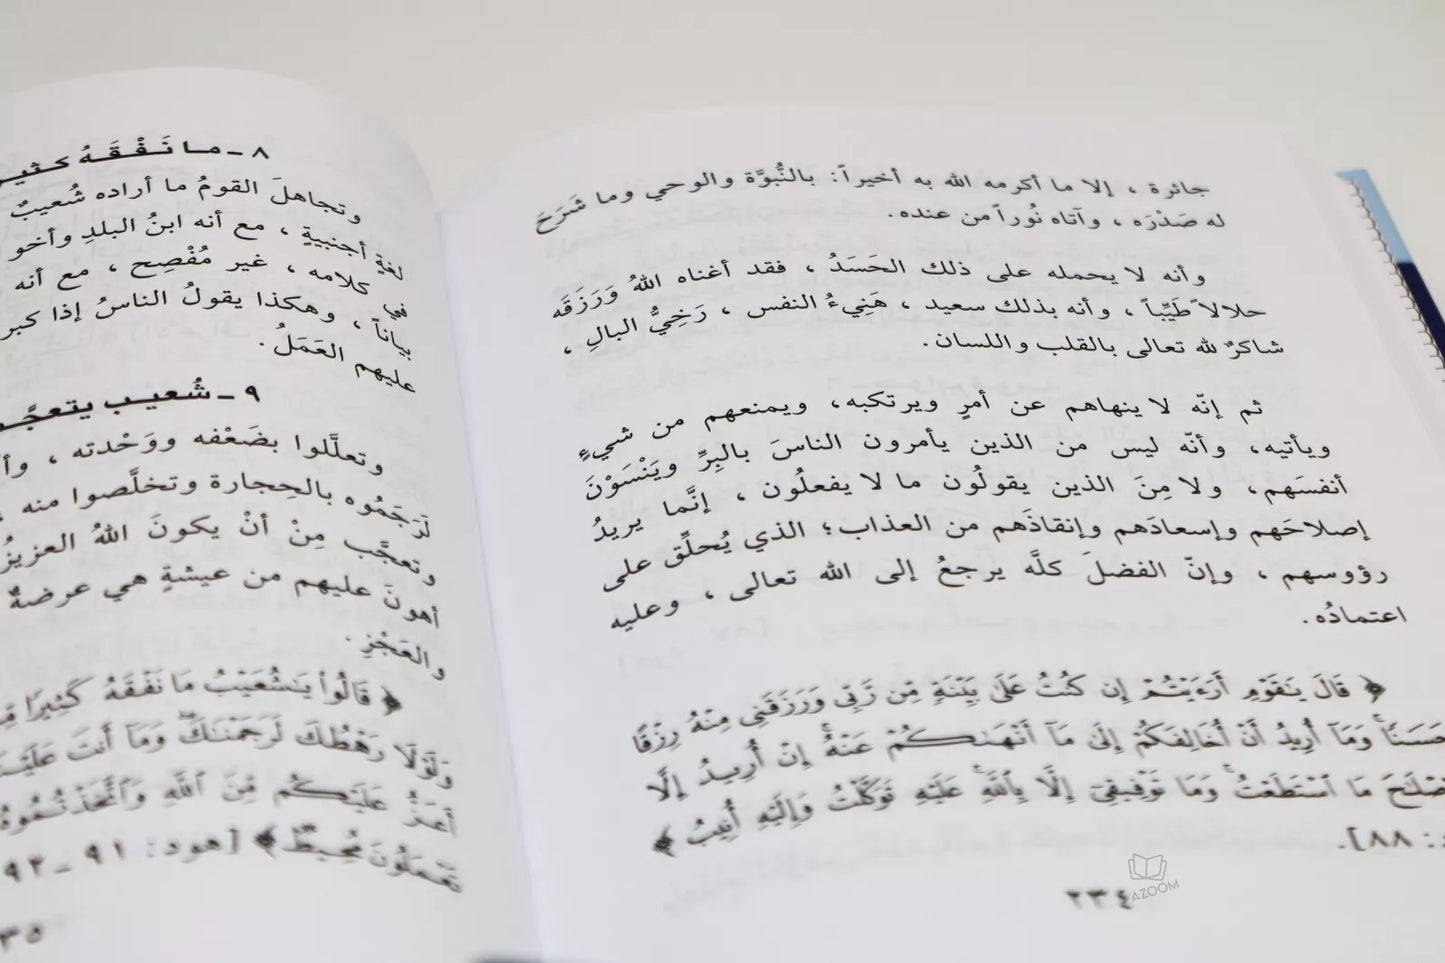 جائرة ، إلا ما أكرمه الله به أخيراً: بالنُّبوَّة والوحي وما شَرَحَ
له صَدْرَه ، وآتاه نُوراً من عنده.
وأنه لا يحمله على ذلك الحَسَدُ ، فقد أغناه اللهُ وَرَزَقَه
حلالاً طَيِّباً ، وأنه بذلك سعيد ، هَنِيءُ النفس ، رَخِيُّ البالِ ،
شاكرٌ لله تعالى بالقلب واللسان.
ثم إنّه لا ينهاهم عن أمرٍ ويرتكبه، ويمنعهم من شيءٍ
ويأتيه، وأنّه ليس من الذين يأمرون الناسَ بالبِرِّ ويَنْسَوْنَ
أنفسَهم، ولا مِنَ الذين يقولُون ما لا يفعلُون ، إنَّما يريدُ
إصلاحَهم وإسعادَهم وإنقاذَهم من العذاب؛ الذي يُحلِّق على
رؤوسهم ، وإنّ الفضلَ كلَّه يرجعُ إلى الله تعالى ، وعليه
اعتمادُه.
﴿ قَالَ يَٰقَوْمِ أَرَءَيْتُمْ إِن كُنتُ عَلَىٰ بَيِّنَةٍ مِّن رَّبِّي وَرَزَقَنِي مِنْهُ رِزْقًا
حَسَنًاۚ وَمَآ أُرِيدُ أَنْ أُخَالِفَكُمْ إِلَىٰ مَآ أَنْهَىٰكُمْ عَنْهُۚ إِنْ أُرِيدُ إِلَّا
مَا ٱسْتَطَعْتُۚ وَمَا تَوْفِيقِيٓ إِلَّا بِٱللَّهِۚ عَلَيْهِ تَوَكَّلْتُ وَإِلَيْهِ أُنِيبُ ﴾
٨٨].
٢٣٤
AZOOM
٨ - ما نَفْقَهُ
وتجاهلَ القومُ ما أراده شُعيبٌ
لغةٍ أجنبيةٍ ، مع أنه ابنُ البلدِ وأخو
في كلامه ، غير مُفْصِح ، مع أنه
بياناً ، وهكذا يقولُ الناسُ إذا كبر
عليهم العَمَلُ.
٩ - شُعيب
وتعلَّلوا بضَعْفه ووَحْدته ،
لَرَجَمُوه بالحِجارة وتخلَّصوا منه
وتعجَّب مِنْ أنْ يكونَ اللهُ العزيزُ
أهونَ عليهم من عيشةٍ هي عرضةٌ
والعَجْزِ.
﴿ قَالُواْ يَٰشُعَيْبُ مَا نَفْقَهُ كَثِيرًا
وَلَوْلَا رَهْطُكَ لَرَجَمْنَٰكَۖ وَمَآ أَنتَ
أَعَزُّ عَلَيْكُم مِّنَ ٱللَّهِ وَٱتَّخَذْتُمُوهُ
تَعْمَلُونَ مُحِيطٌ ﴾ [هود: ٩١ -